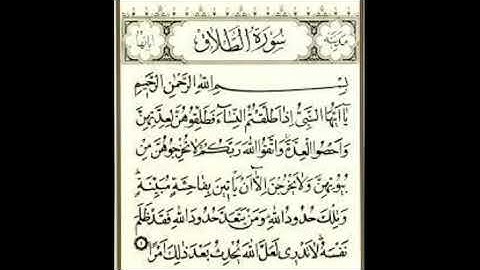 سُورَةُ الطَّلَاقِ
بِسْمِ اللّٰهِ الرَّحْمٰنِ الرَّحِيمِ
يَا اَيُّهَا النَّبِيُّ اِذَا طَلَّقْتُمُ النِّسَاءَ فَطَلِّقُوهُنَّ لِعِدَّتِهِنَّ
وَاَحْصُوا الْعِدَّةَ وَاتَّقُوا اللّٰهَ رَبَّكُمْ لَا تُخْرِجُوهُنَّ مِنْ
بُيُوتِهِنَّ وَلَا يَخْرُجْنَ اِلَّا اَنْ يَأْتِينَ بِفَاحِشَةٍ مُبَيِّنَةٍ
وَتِلْكَ حُدُودُ اللّٰهِ وَمَنْ يَتَعَدَّ حُدُودَ اللّٰهِ فَقَدْ ظَلَمَ
نَفْسَهُ لَا تَدْرِي لَعَلَّ اللّٰهَ يُحْدِثُ بَعْدَ ذٰلِكَ اَمْرًا